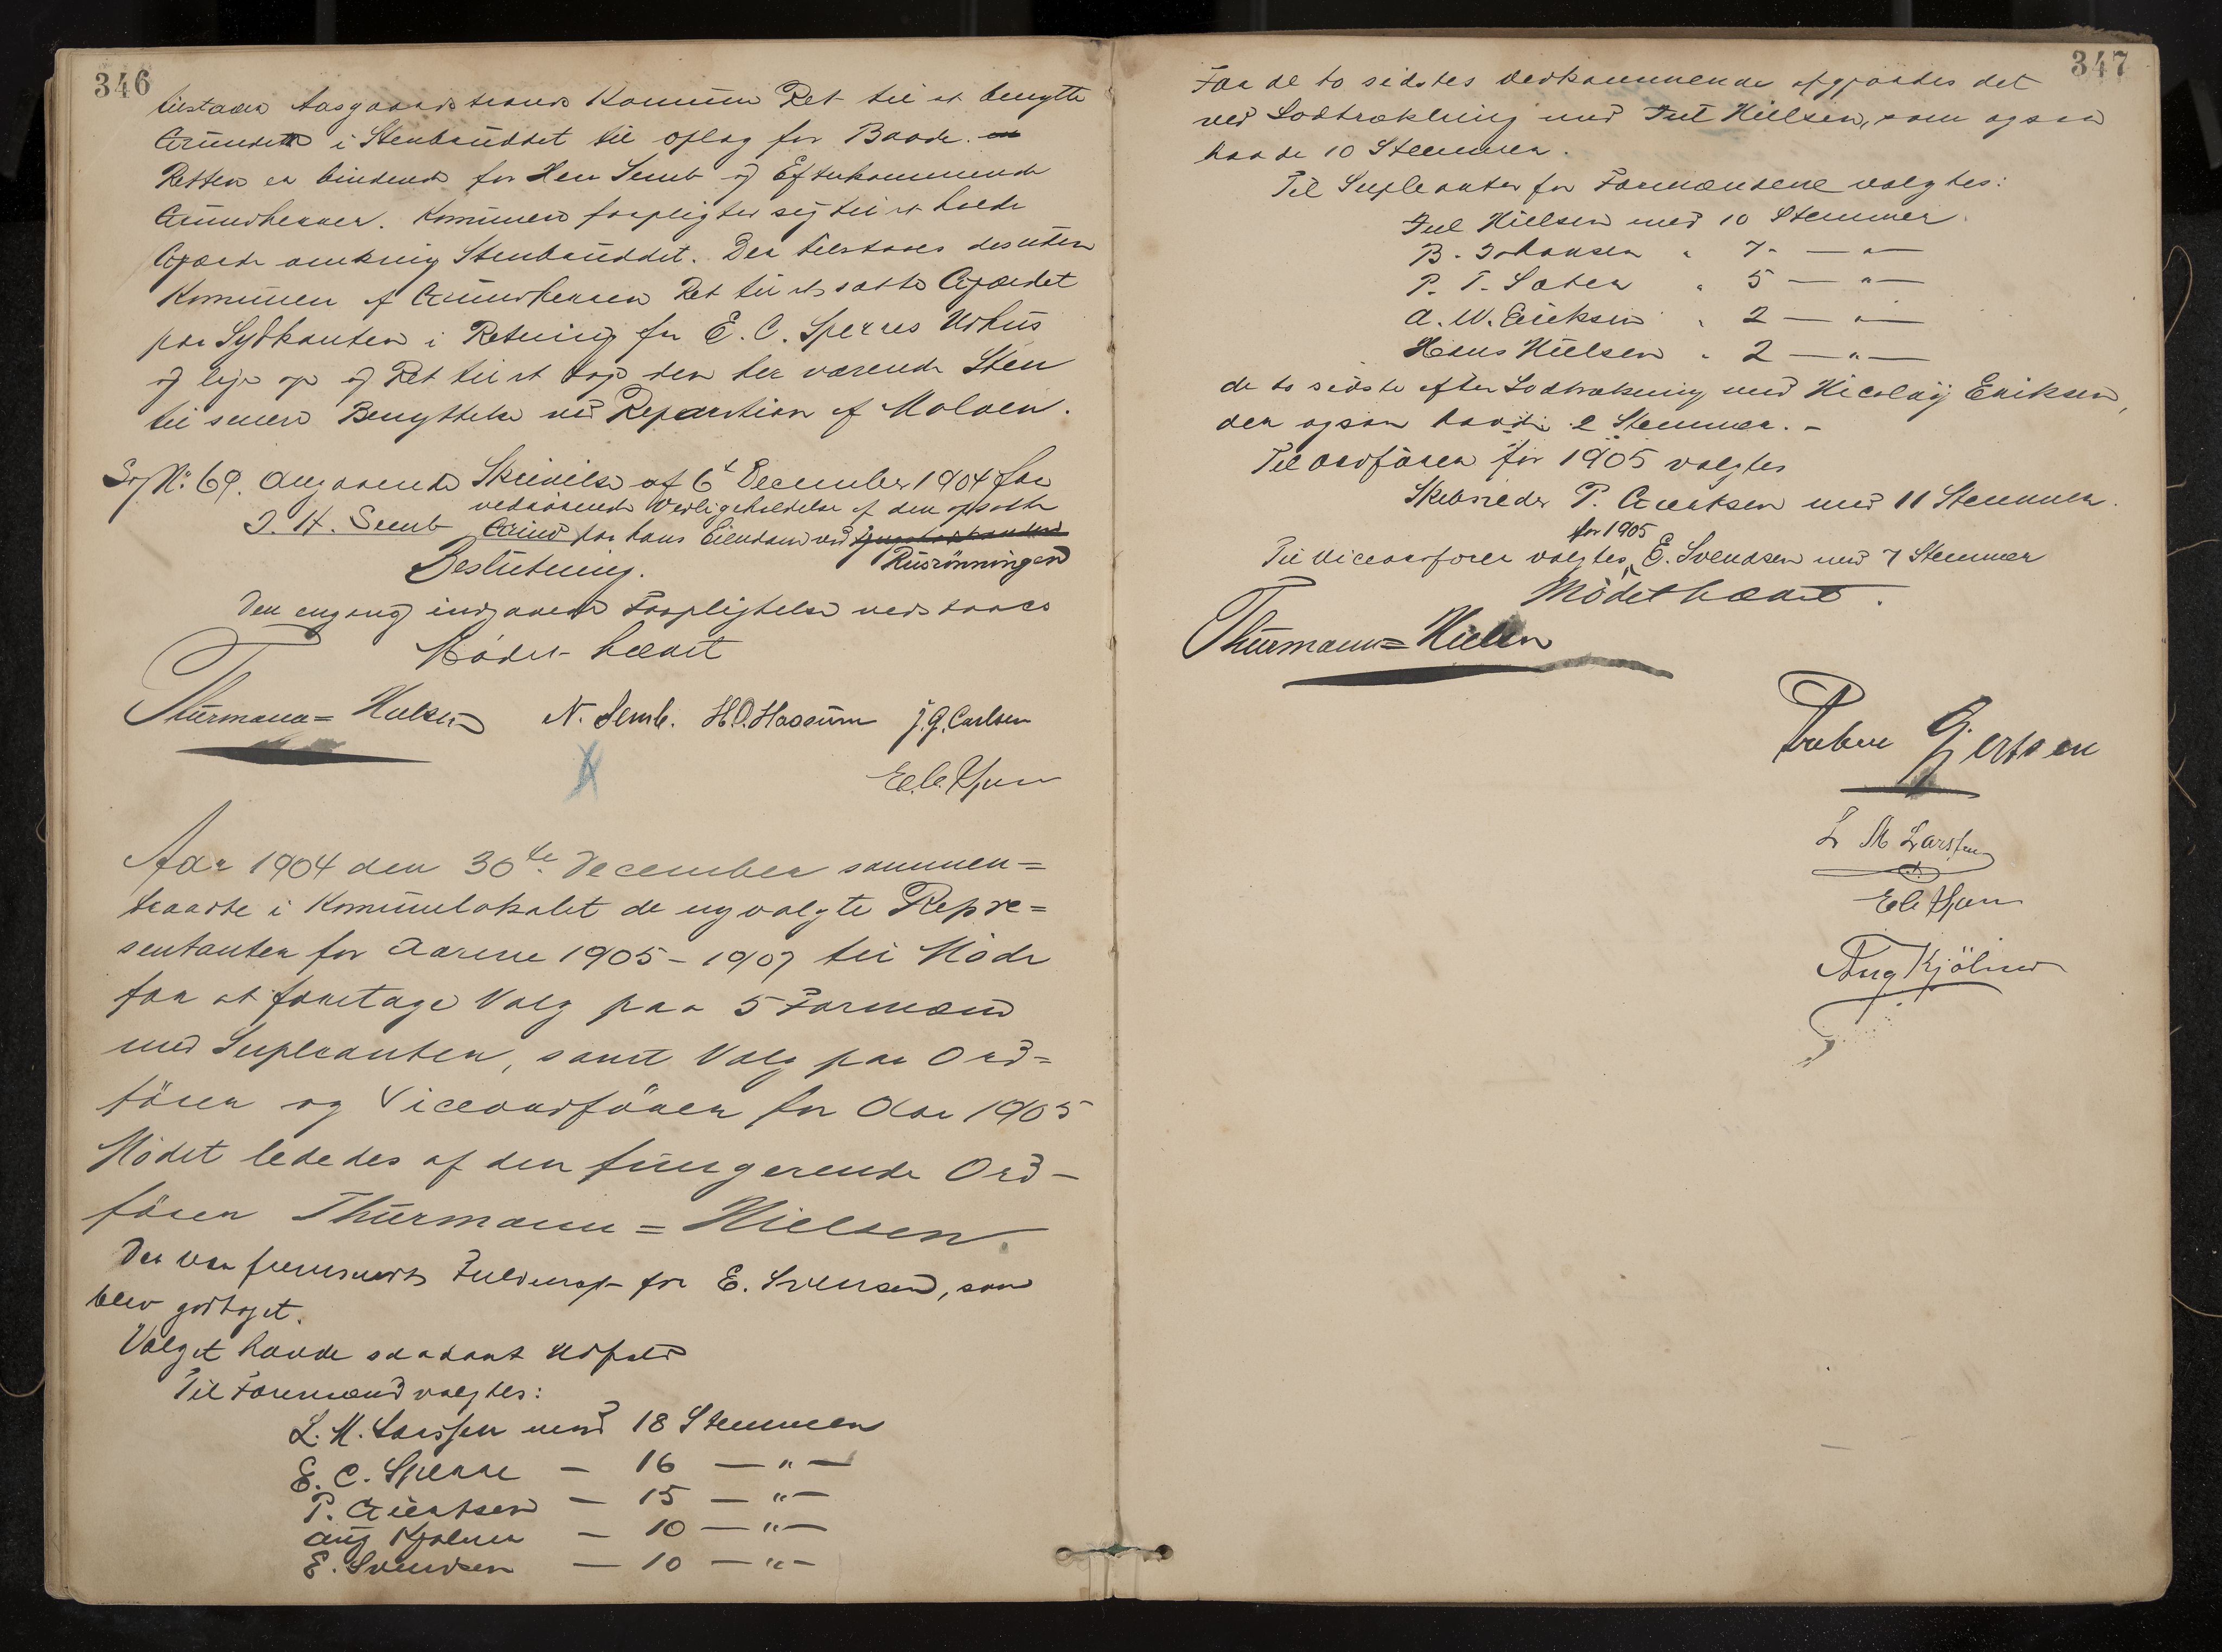 346
tilstaaes Aasgaardstrands Komune Ret til at benytte
Grunden i Stenbruddet til oplag for Baade.
Retten er bindende for Herr Semb og Efterkommende
Grundherrer. Komunen forpligter sig til at holde
Gjærde omkring Stenbruddet. Der tilstaaes desuten
Komunen af Grundherren Ret til at sætte Gjærdet
paa Sydkanten i Retning for E. C. Sperres Udhus
og Ret til at tage den der værende Sten
til senere Benyttelse ved Reparation af Moloen.
Sag No: 69. Angaaende Skrivelse af 6t December 1904 fra
vedrørende Vedligeholdelse af den opsatte
J. H. Semb Grind fra hans Eiendom ved
Rusrønningen
Beslutning.
Den engang indgaaede Forpligtelse vedtaaes
Mødet hævet
Thurmann=Nielsen N. Semb. H.O. Hassum J. G. Carlsen
Aar 1904 den 30te December sammen=
traadte i Komunelokalet de nyvalgte Repre=
sentanter for Aarene 1905-1907 til Møde
for at foretage Valg paa 5 Formænd
med Supleanter, samt Valg paa Ord=
fører og Viceordfører for Aar 1905
Mødet lededes af den fungerende Ord-
fører Thurmann=Nielsen.
Der var fremsendt Fuldmagt for E. Svensen, som
blev godtaget.
Valget havde saadant Udfald
Til Formænd valgtes:
L. M. Larssen med 18 Stemmer
E. C. Sperre — 16 — " —
P. Giertsen — 15 — " —
Aug Kjølner — 10 — " —
E. Svendsen — 10 — " —
347
For de to sidstes Vedkommende afgjordes det
ved Lodtrækning med Jul Nielsen, som ogsaa
havde 10 Stemmer.
Til Supleanter for Formændene valgtes:
Jul Nielsen med 10 Stemmer
B. Johansen " 7 — " —
P. T. " 5 — " —
A. W. Eriksen " 2 — " —
Hans Nielsen " 2 — " —
de to sidste efter Lodtrækning med Nicolay Eriksen,
der ogsaa havde 2 Stemmer. -
Til Ordfører for 1905 valgtes
Skibsreder P. Giertsen med 11 Stemmer.
for 1905
Til Viceordfører valgtes E. Svendsen med 7 Stemmer
Mødet hævet.
Thurmann=Nielsen
Preben Gjertsen
L M Larssen
Aug Kjölner